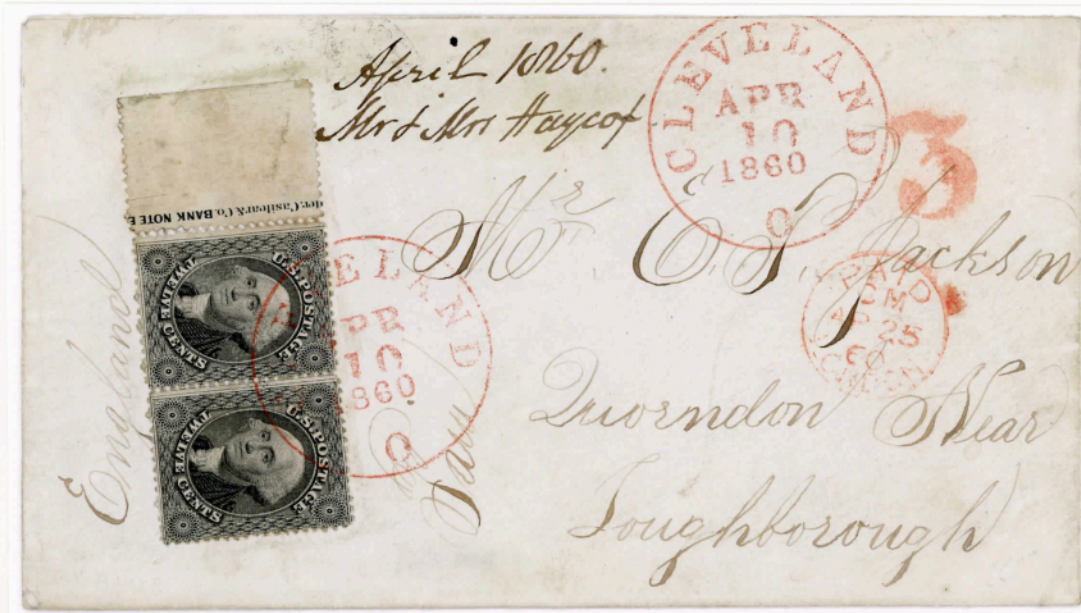 April 1860.
Mr & Mrs Haycof
CLEVELAND
APR
10
1860
O
3
Mr E. S. Jackson
PAID
AP 25
60
LONDON
Quorndon Near
Loughborough
England
Casilear & Co. BANK NOTE E
U.S. POSTAGE
TWELVE CENTS
U.S. POSTAGE
TWELVE CENTS
ELAND
APR
10
1860
O